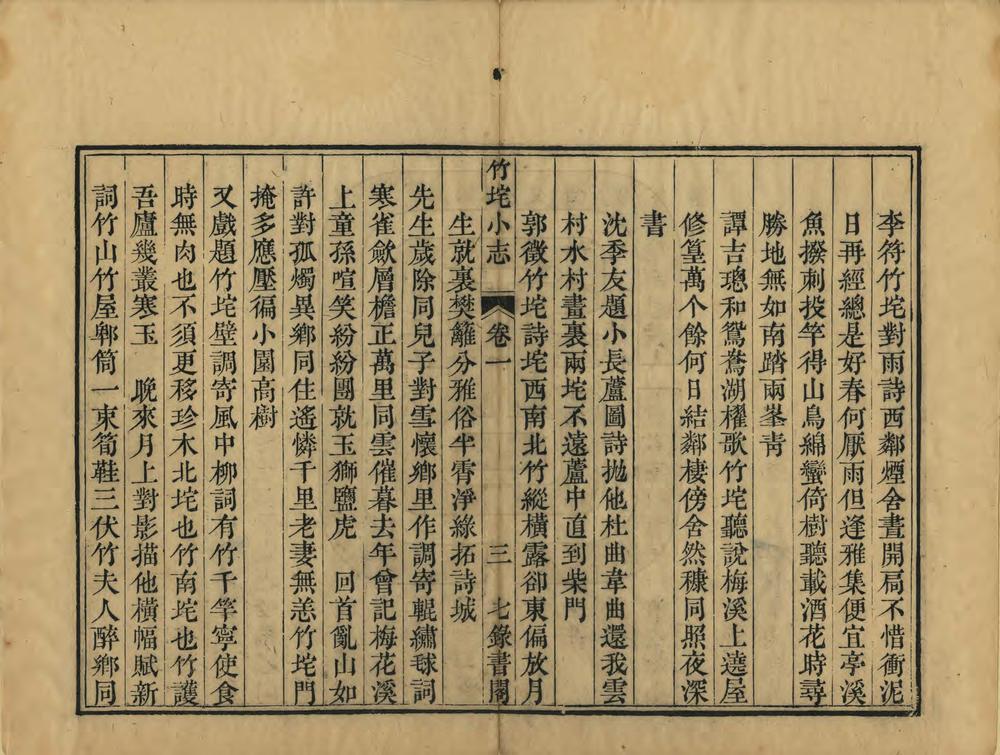 李符竹垞對雨詩西鄰煙舍晝開局不惜衝泥
日再經總是好春何厭雨但逢雅集便宜亭溪
魚撥刺投竿得山鳥綿蠻倚樹聽載酒花時尋
勝地無如南踏兩峯靑
譚吉璁和鴛鴦湖櫂歌竹垞聽說梅溪上遶屋
修篁萬个餘何日結鄰棲傍舍然糠同照夜深
書
沈季友題小長蘆圖詩拋他杜曲韋曲還我雲
村水村畫裏兩垞不遠蘆中直到柴門
郭徵竹垞詩垞西南北竹縱橫露卻東偏放月
生就裏樊籬分雅俗半霄淨綠拓詩城
竹垞小志 卷一 三 七錄書閣
先生歲除同兒子對雪懷鄉里作調寄輥繡毬詞
寒雀歛層檐正萬里同雲催暮去年曾記梅花溪
上童孫喧笑紛紛團就玉獅鹽虎 回首亂山如
許對孤燭異鄉同住遙憐千里老妻無恙竹垞門
掩多應壓徧小園高樹
又戲題竹垞壁調寄風中柳詞有竹千竿寧使食
時無肉也不須更移珍木北垞也竹南垞也竹護
吾廬幾叢寒玉 晚來月上對影描他橫幅賦新
詞竹山竹屋郫筒一束筍鞋三伏竹夫人醉鄉同